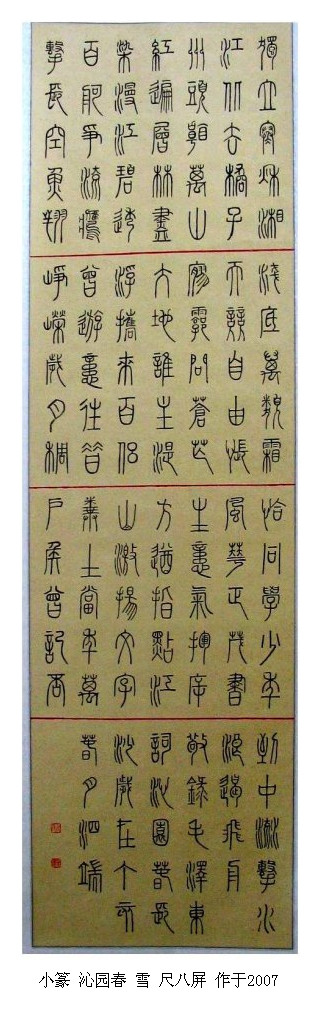 獨立寒秋湘
江北去橘子
州頭看萬山
紅遍層林盡
染漫江碧透
百舸爭流鷹
擊長空魚翔
淺底萬類霜
天競自由悵
寥廓問蒼茫
大地誰主湛
浮攜來百侶
曾遊憶往昔
崢嶸歲月稠
恰同學少年
風華正茂書
生意氣揮斥
方遒指點江
山激揚文字
糞土當年萬
戶侯曾記否
到中流擊水
浪遏飛舟
敬錄毛澤東
詞沁園春長
沙歲在丁亥
春月泗端
小篆 沁园春 雪 尺八屏 作于2007